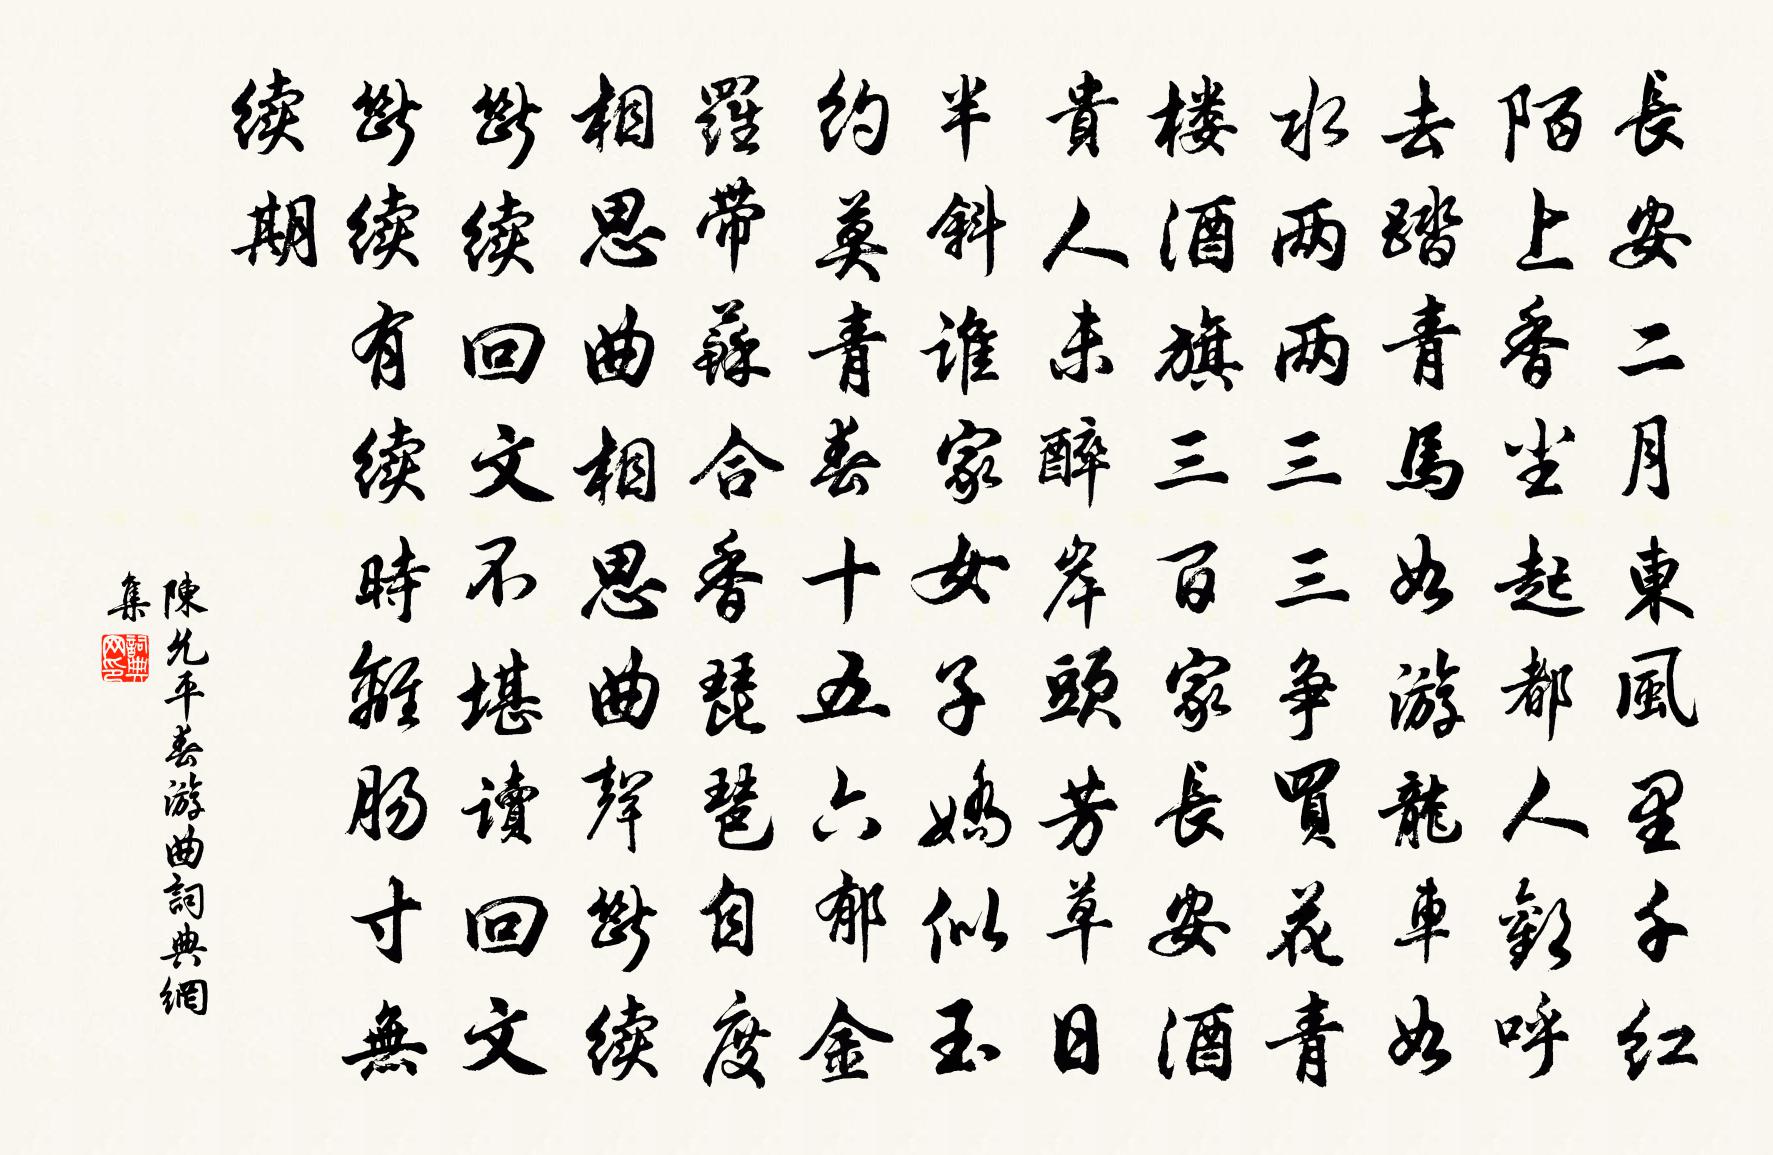 長安二月東風里千红
陌上香尘起都人歡呼
去踏青馬如游龍車如
水两两三三争買花青
楼酒旗三百家長安酒
貴人未醉岸頭芳草日
半斜谁家女子嬌似玉
約莫青春十五六郁金
羅带蘇合香琵琶自度
相思曲相思曲聲断续
断续回文不堪读回文
断续有续時離肠寸無
续期
陳允平春游曲詞典網
集
詞典网印